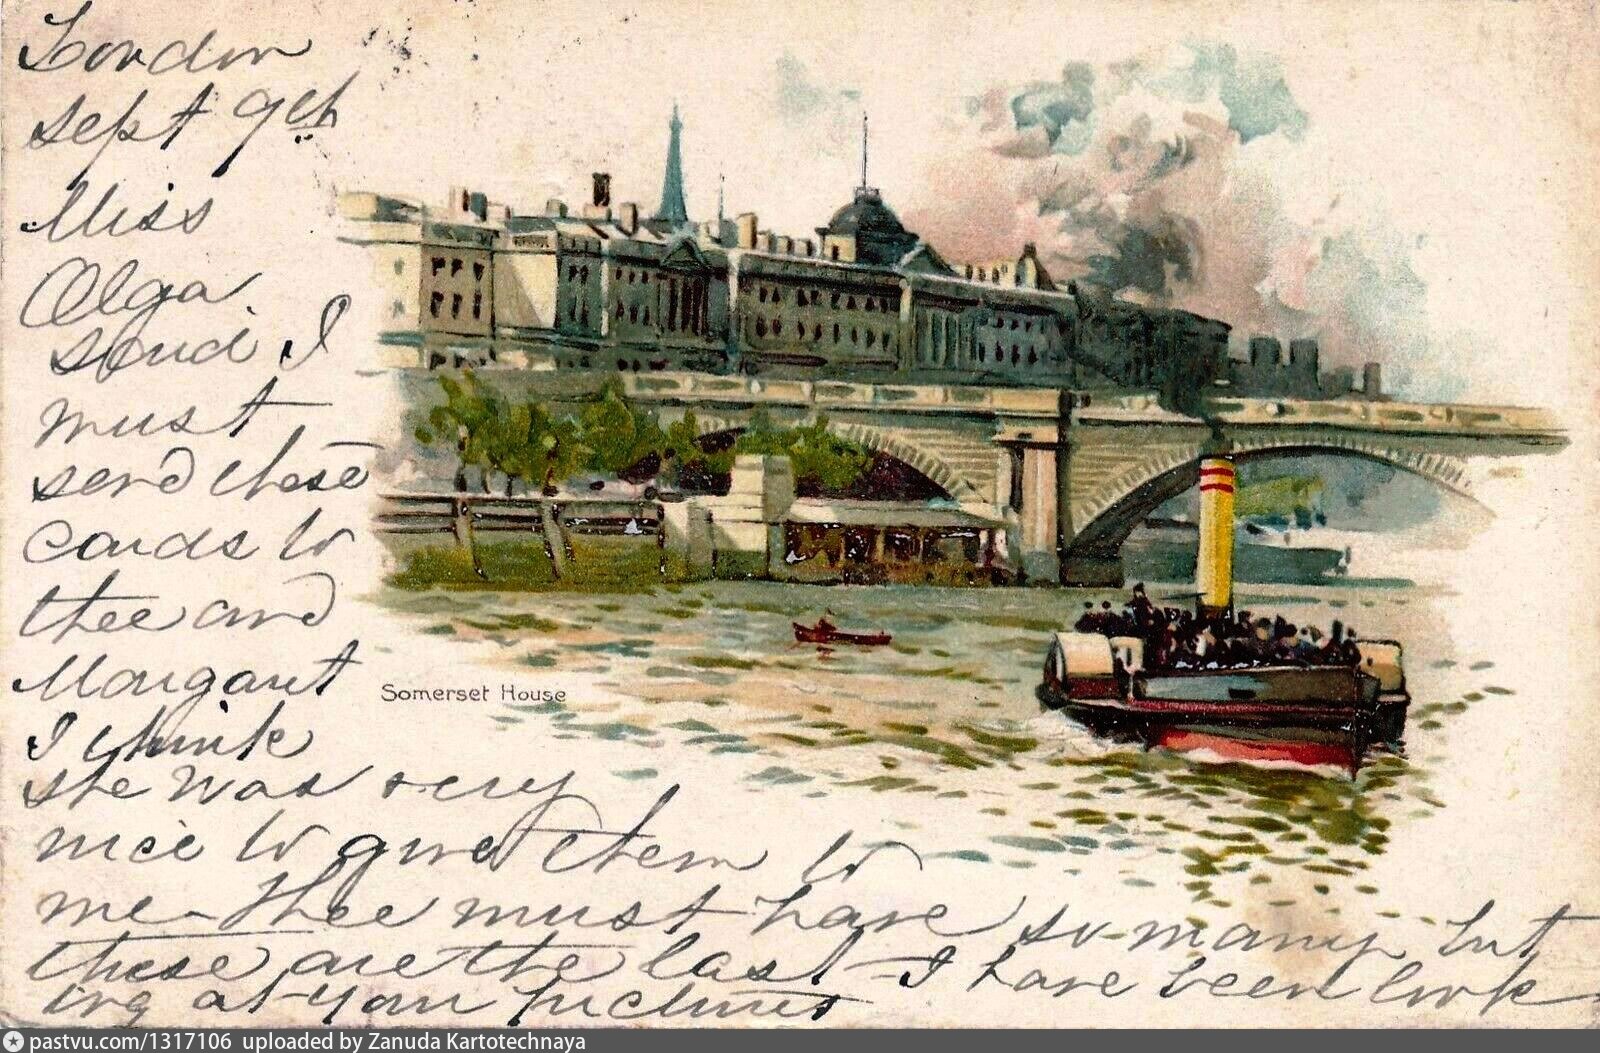 London
Sept 9th
Miss
Olga
said I
must
send these
cards to
thee and
Margaret
I think
she was very
nice to give them to
me - Thee must have so many but
these are the last - I have been look
ing at your pictures
Somerset House
pastvu.com/1317106 uploaded by Zanuda Kartotechnaya